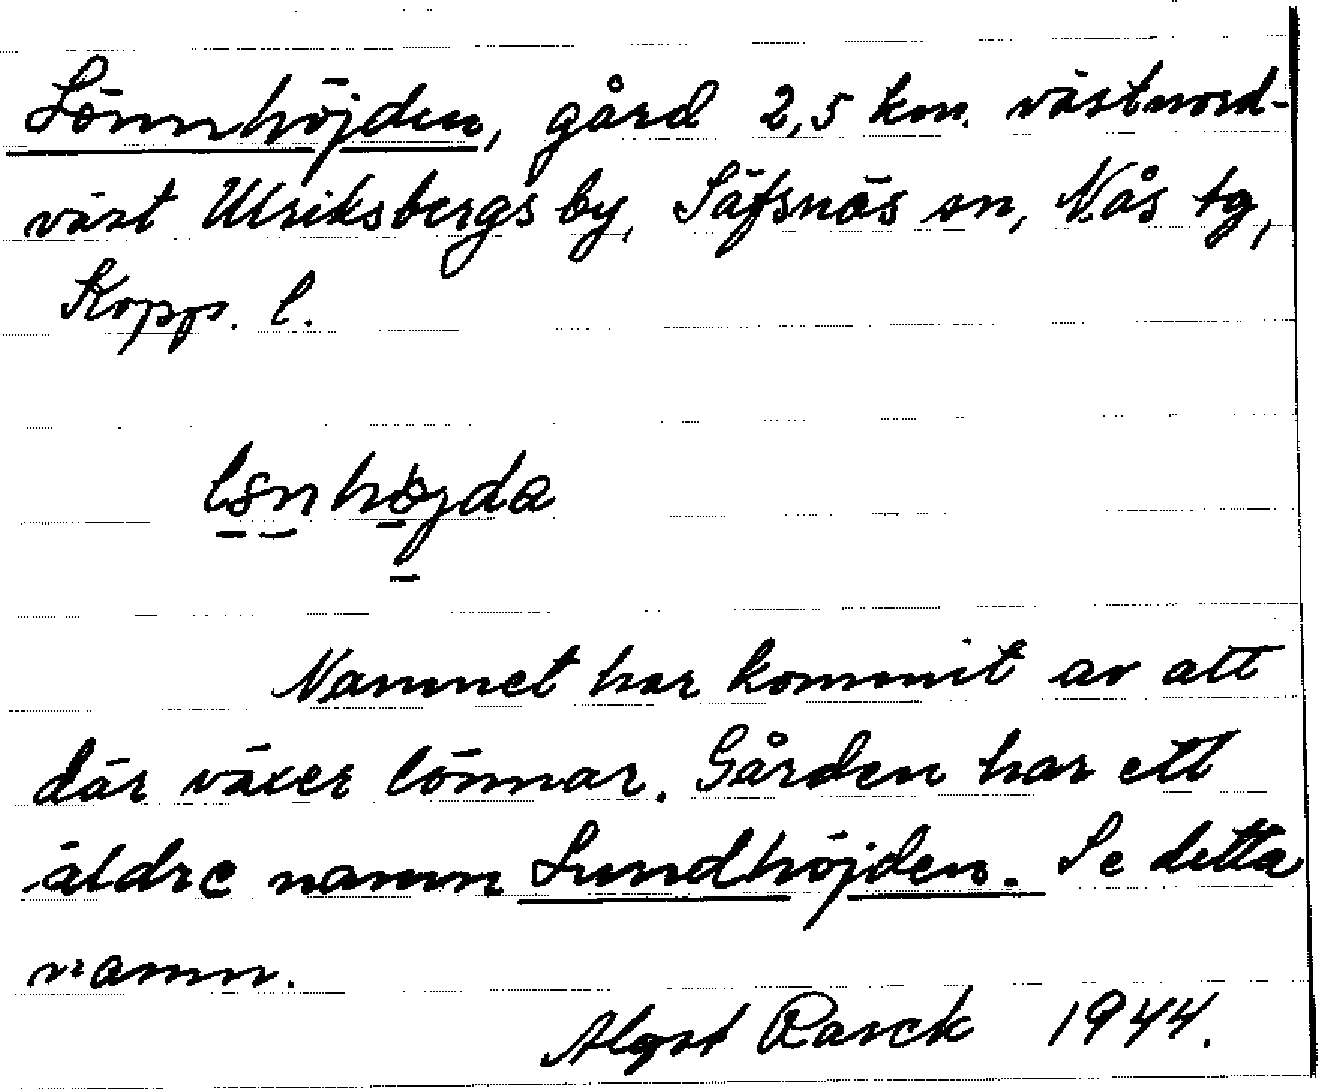 Lönnhöjden, gård 2,5 km. västnord-
väst Ulriksbergs by, Säfsnäs sn, Nås tg,
Kopps. l.
lönhöjda
Namnet har kommit av att
där växer lönnar. Gården har ett
äldre namn Lundhöjden. Se detta
namn.
Algot Rarck 1944.